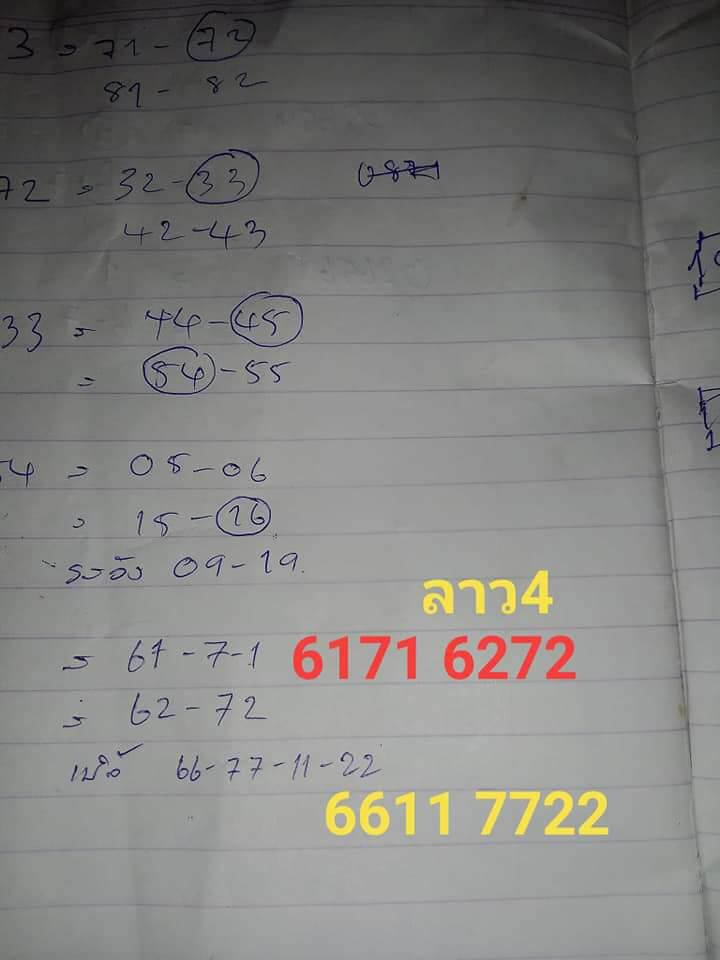 3 = 71 - 72
81 - 82
72 = 32 - 33
42 - 43
33 = 44 - 45
= 54 - 55
54 = 05 - 06
= 15 - 16
ระวัง 09 - 19
ลาว4
= 61 - 7-1 6171 6272
= 62 - 72
66 - 77 - 11 - 22
6611 7722